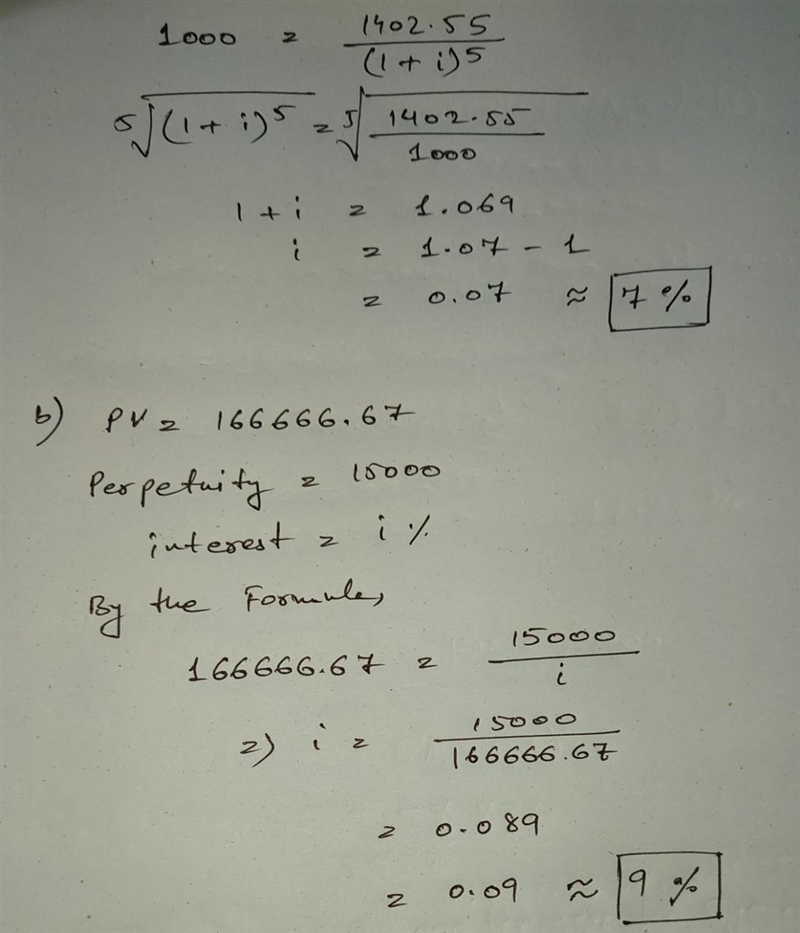 1000 = 1402.55 / (1 + i)^5
⁵√(1 + i)^5 = ⁵√(1402.55 / 1000)
1 + i = 1.069
i = 1.07 - 1
= 0.07 ≈ 7 %
b) PV = 166666.67
Perpetuity = 15000
interest = i %
By the Formula,
166666.67 = 15000 / i
=) i = 15000 / 166666.67
= 0.089
= 0.09 ≈ 9 %